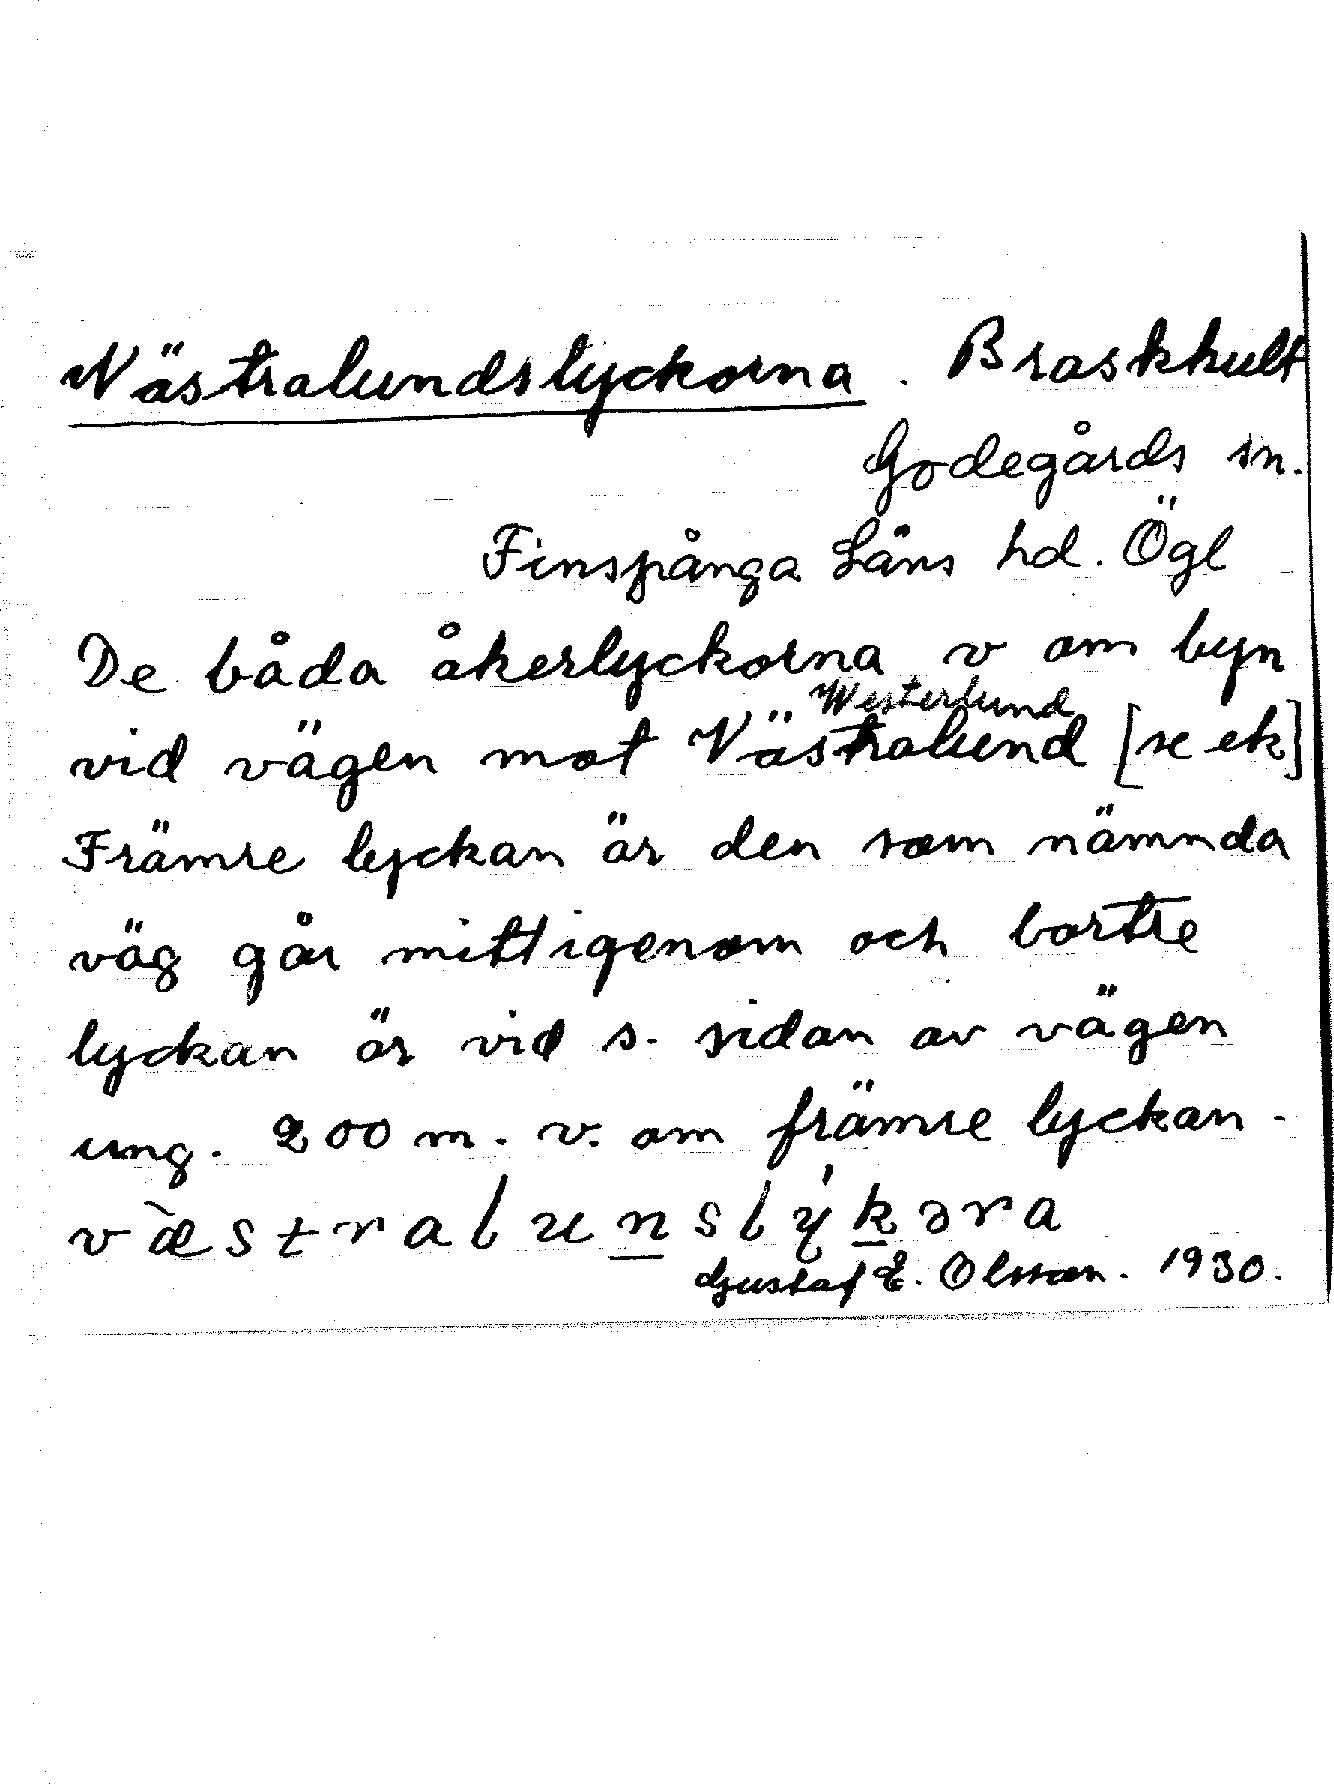 Västralundslyckorna. Braskhult
Godegårds sn.
Finspånga Läns hd. Ögl
De båda åkerlyckorna v om byn
Westerlund
vid vägen mot Västralund [se ek]
Främre lyckan är den som nämnda
väg går mitt igenom och bortre
lyckan är vid s. sidan av vägen
ung. 200 m. v. om främre lyckan.
væ̀stralunslýkəra
Gustaf E. Olsson. 1930.